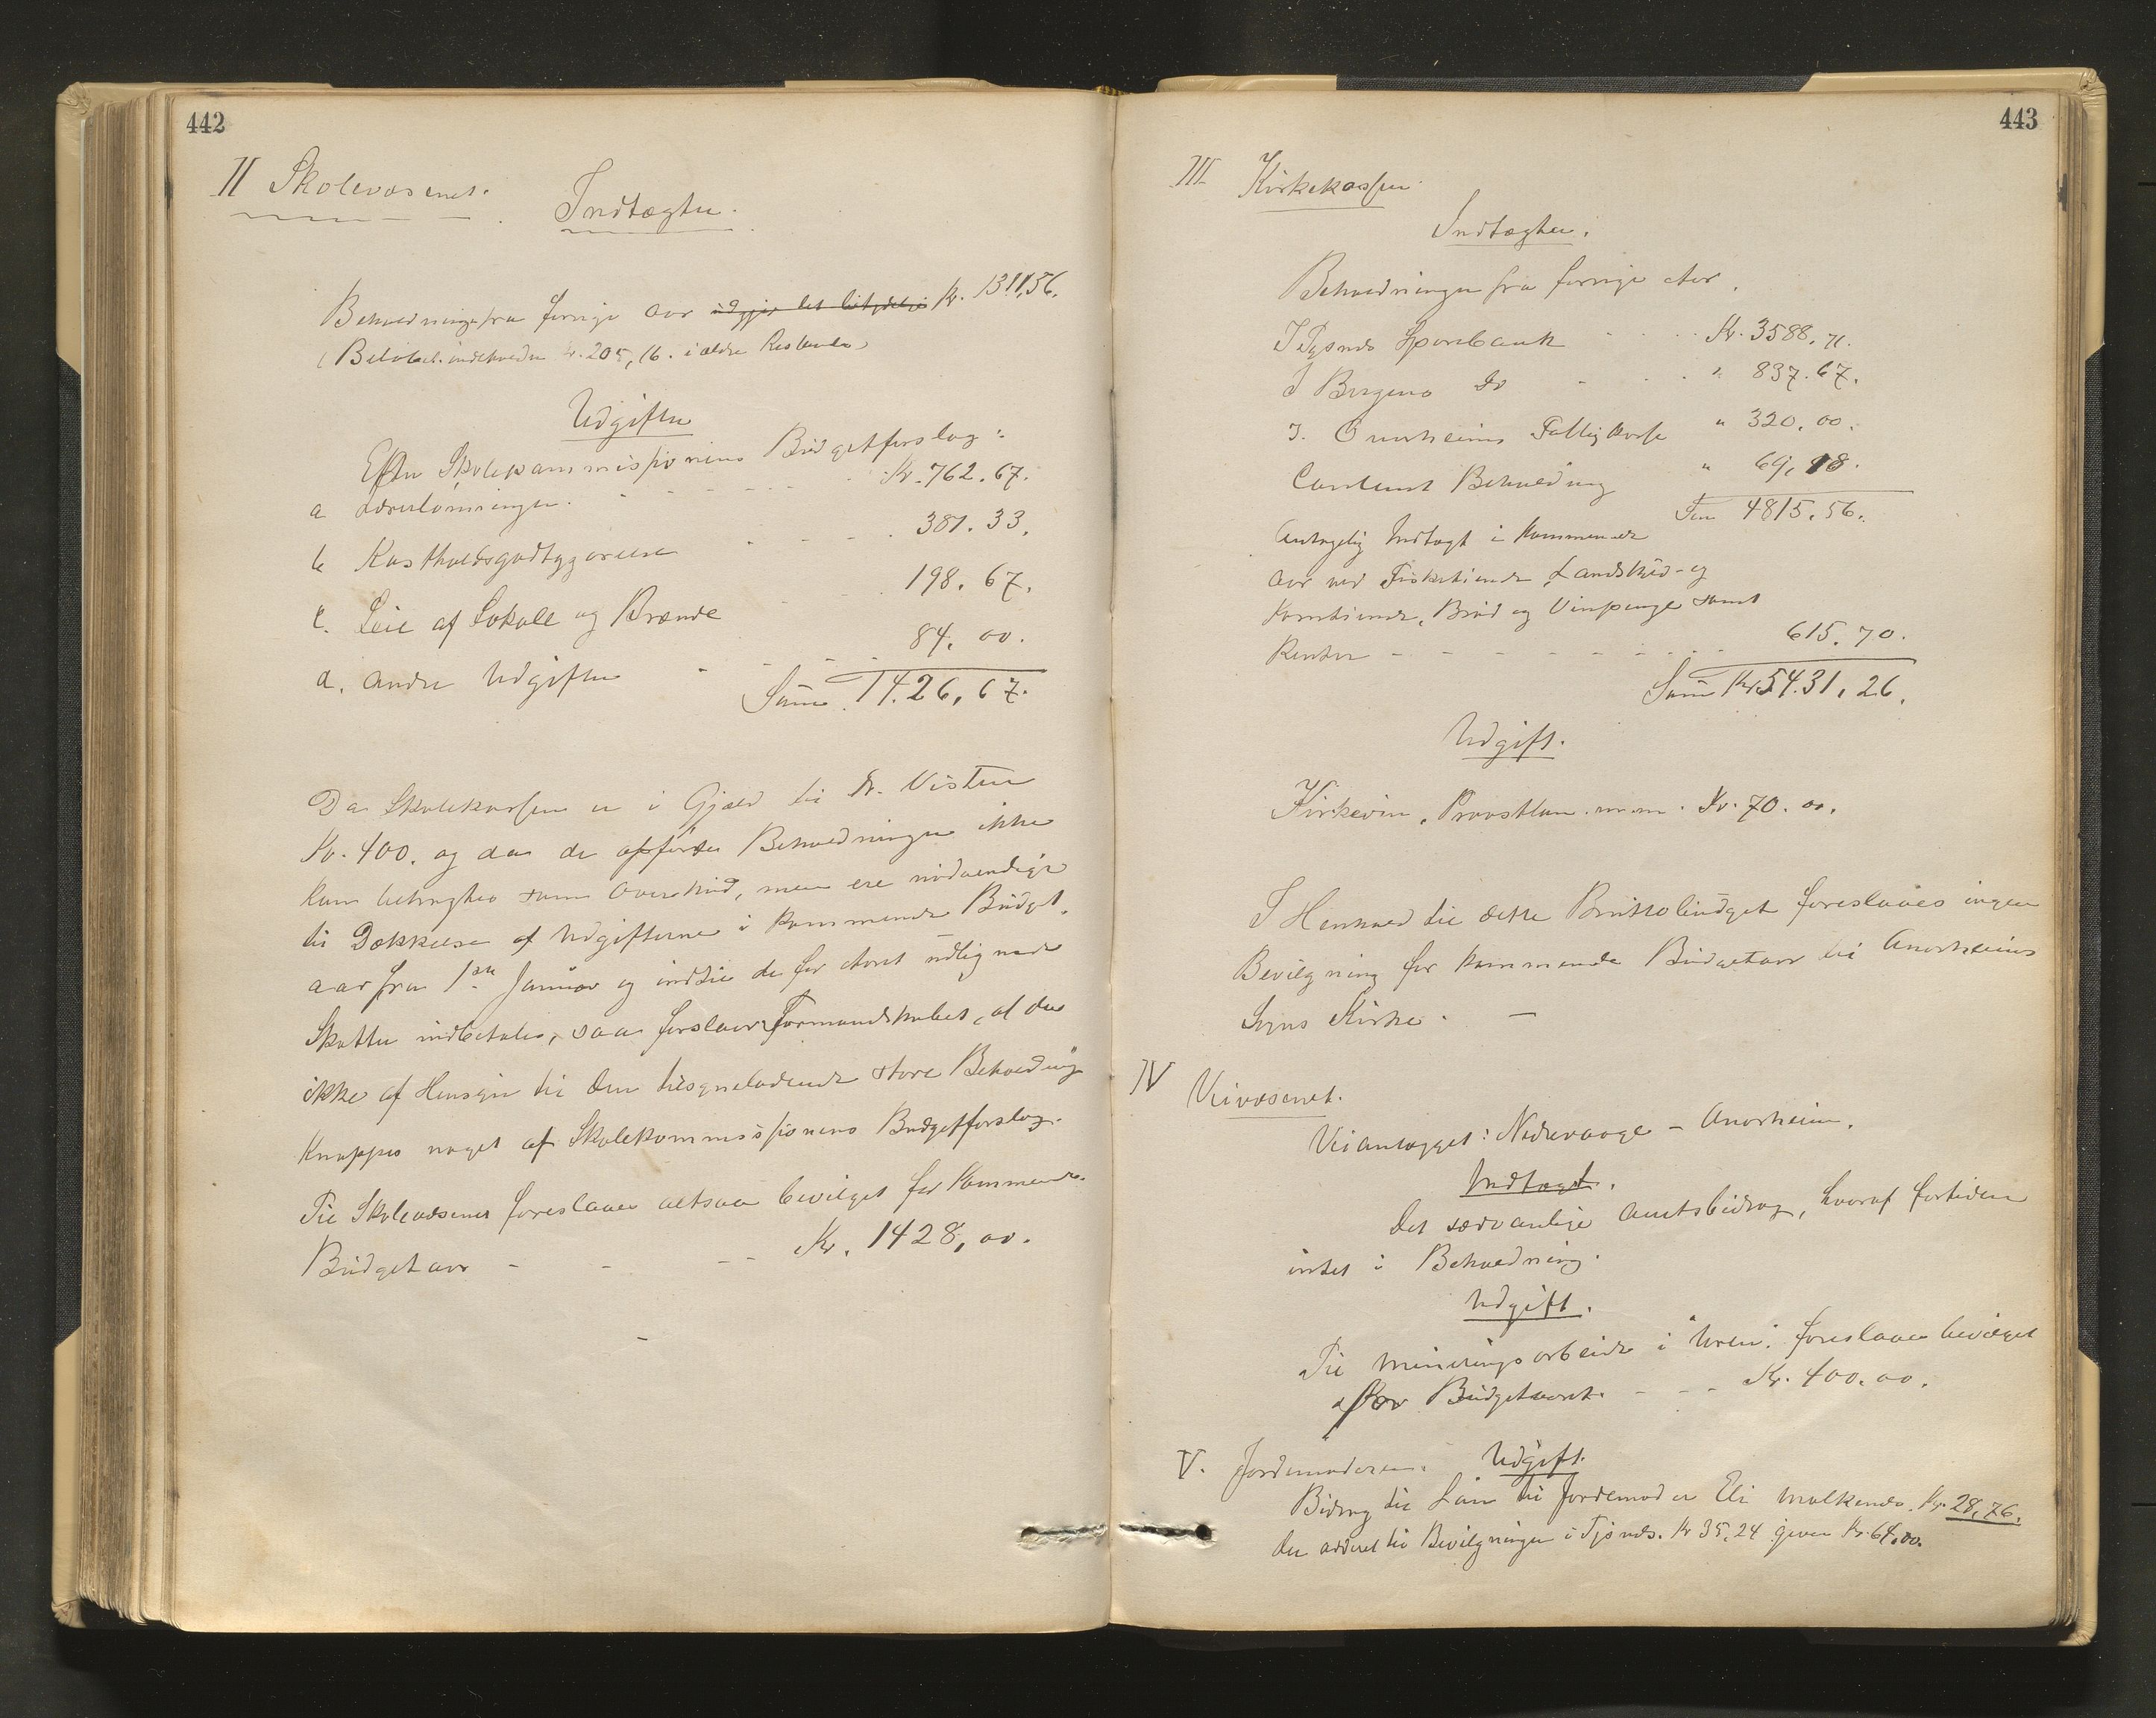 442
II Skolevæsenet.
Indtægter.
Beholdninge fra forrige Aar udgjør det betydelige Kr. 1311,56.
(Beløbet indeholder Kr. 205,16. i ældre Restancer
Udgifter
Efter Skolekommissionens Budgetforslag:
a Lærerlønninger. Kr. 762.67.
b Kostholdsgodtgjørelse 381.33.
c. Leie af Lokale og Brænde 198.67.
d. Andre Udgifter 84.00.
Sum 1426,67.
Da Skolekassen er i Gjæld til Vistun
Kr. 400. og da de opførte Beholdninger ikke
kan betragtes som Overskud, men ere nødvendige
til Dækkelse af Udgifterne i kommende Budget-
aar fra 1ste Januar og indtil de for Aaret udlignede
Skatter indbetales, saa forslaar Formandskabet, at der
ikke af Hensyn til den tilsyneladende store Beholdning
knappes noget af Skolekommissionens Budgetforslag.
Til Skolevæsenet foreslaaes altsaa bevilget for kommende
Budgetaar - - - Kr. 1428,00.
443
III Kirkekassen
Indtægter.
Beholdninger fra forrige Aar.
I Tysnes Sparebank Kr. 3588,71.
I Bergens Do " 837.67.
I. Onarheims Fattigkasse " 320,00.
Contant Beholdning " 69,18.
Sum 4815.56.
Antagelig Indtægt i kommende
Aar ved Fisketiende, Landskyld- og
Korntiende, Brød og Vinpenge samt
Renter - - - - 615.70.
Sum Kr. 5431,26.
Udgift.
Kirkevin, Provstløn. m.m. Kr. 70.00.
I Henhold til dette Bruttobudget foreslaaes ingen
Bevilgning for kommende Budgetaar til Onarheims
Sogns Kirke. -
IV Veivæsenet.
Veianlægget: Nedrevaage - Onarheim.
Indtægt.
Det sædvanlige Amtsbidrag, hvoraf fortiden
intet i Beholdning.
Udgift.
Til Mineringsarbeide i "Uren" foreslaaes bevilget
for Budgetaaret. - - - Kr. 400.00.
V. Jordemoderen. Udgift.
Bidrag til Løn til Jordemoder Eli Malkenes. Kr. 28,76.
der adderet til Bevilgningen i Tysnæs. Kr 35.24 giver Kr. 64,00.